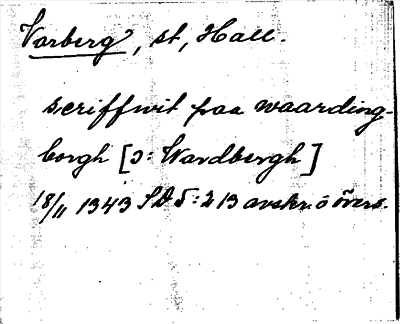 Varberg, st, Hall.
scriffwit paa waarding-
borgh [ɔ: Wardbergh]
18/11 1343 SD 5:213 avskr. o övers.